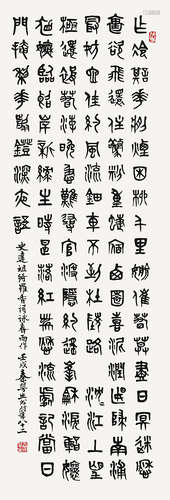 乍冷欺花將煙困柳千里偷催春莫盡日冥迷愁
裏欲飛還住驚粉重蜨宿西園喜泥潤燕歸南浦
最妨它佳約風流鈿車不到杜陵路沈沈江上望
極還被春潮晚急難尋官渡隱約遙峰和淚謝
娘眉嫵臨斷岸新綠生時是落紅帶愁流處記當日
門掩棃花剪鐙深夜語
史達祖綺羅香詞詠春雨作 壬戌春 八十二